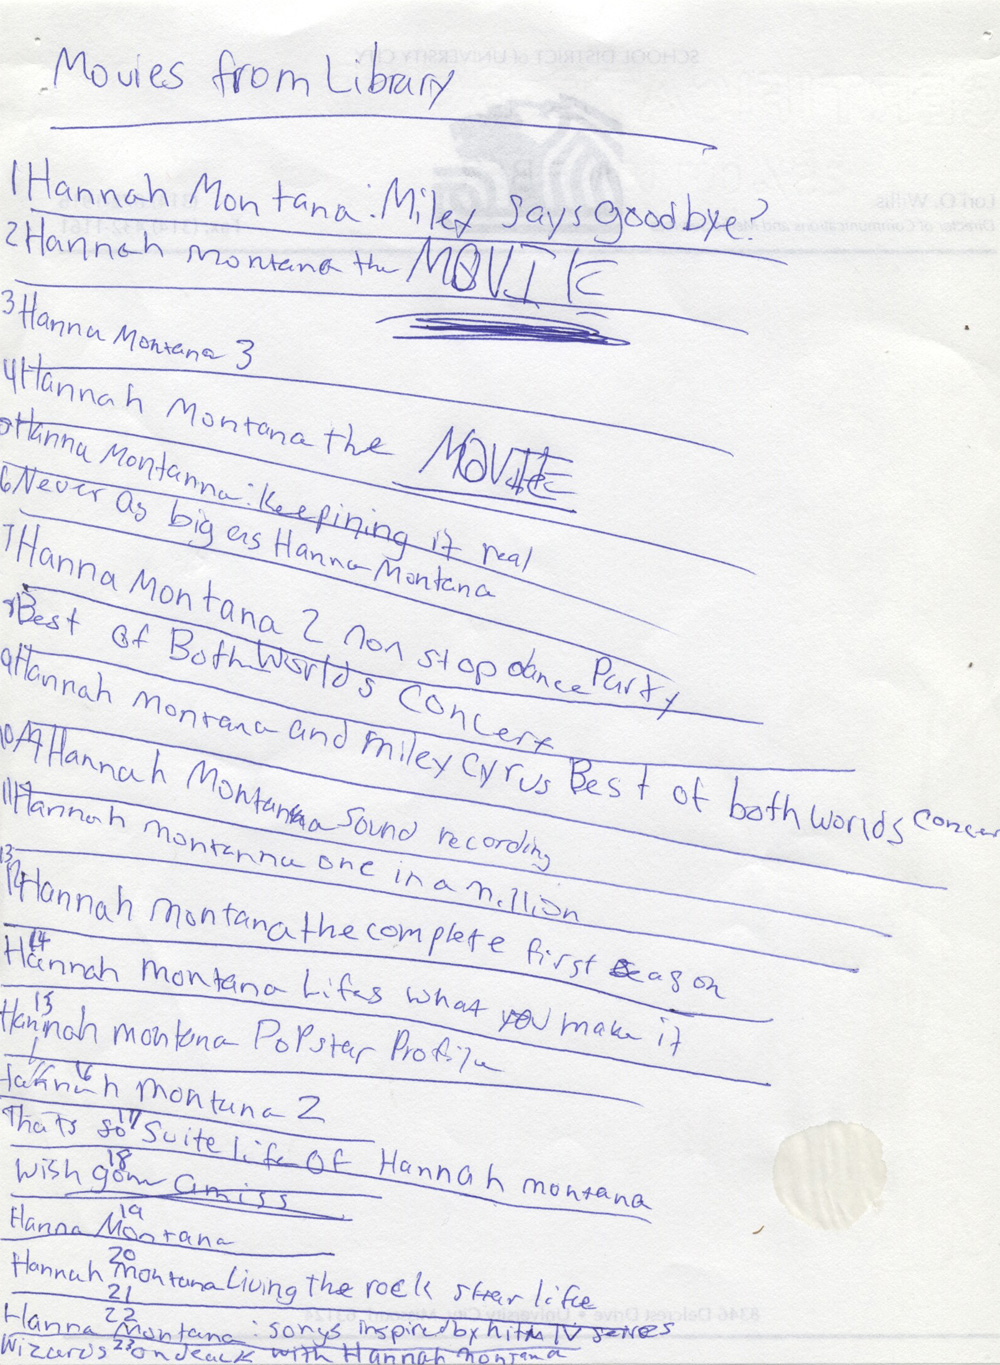 Movies from Library
1 Hannah Montana: Miley Says Goodbye?
2 Hannah Montana the MOVIE
3 Hanna Montana 3
4 Hannah Montana the MOVIE
5 Hanna Montanna: Keepining it real
6 Never As big as Hanna Montana
7 Hanna Montana 2 non stop dance Party
8 Best of Both Worlds Concert
9 Hannah Montana and Miley Cyrus Best of both worlds concer
10 A Hannah Montana sound recording
11 Hannah montanna one in a million
13
12 Hannah montana the complete first season
14
Hannah montana Lifes what you make it
15
Hannah montana PoPstar Profile
16
Hannah montana 2
17
Thats so Suite life Of Hannah montana
18
Wish gone amiss
19
Hanna Montana
20
Hannah montana Living the rock star life
21
22
Hanna Montana: songs inspired by hit TV series
Wizards 23 on deack with Hannah montana
SCHOOL DISTRICT of UNIVERSITY CITY
Lori O. Willis
8346 Delcrest Drive • University City, Missouri 63124